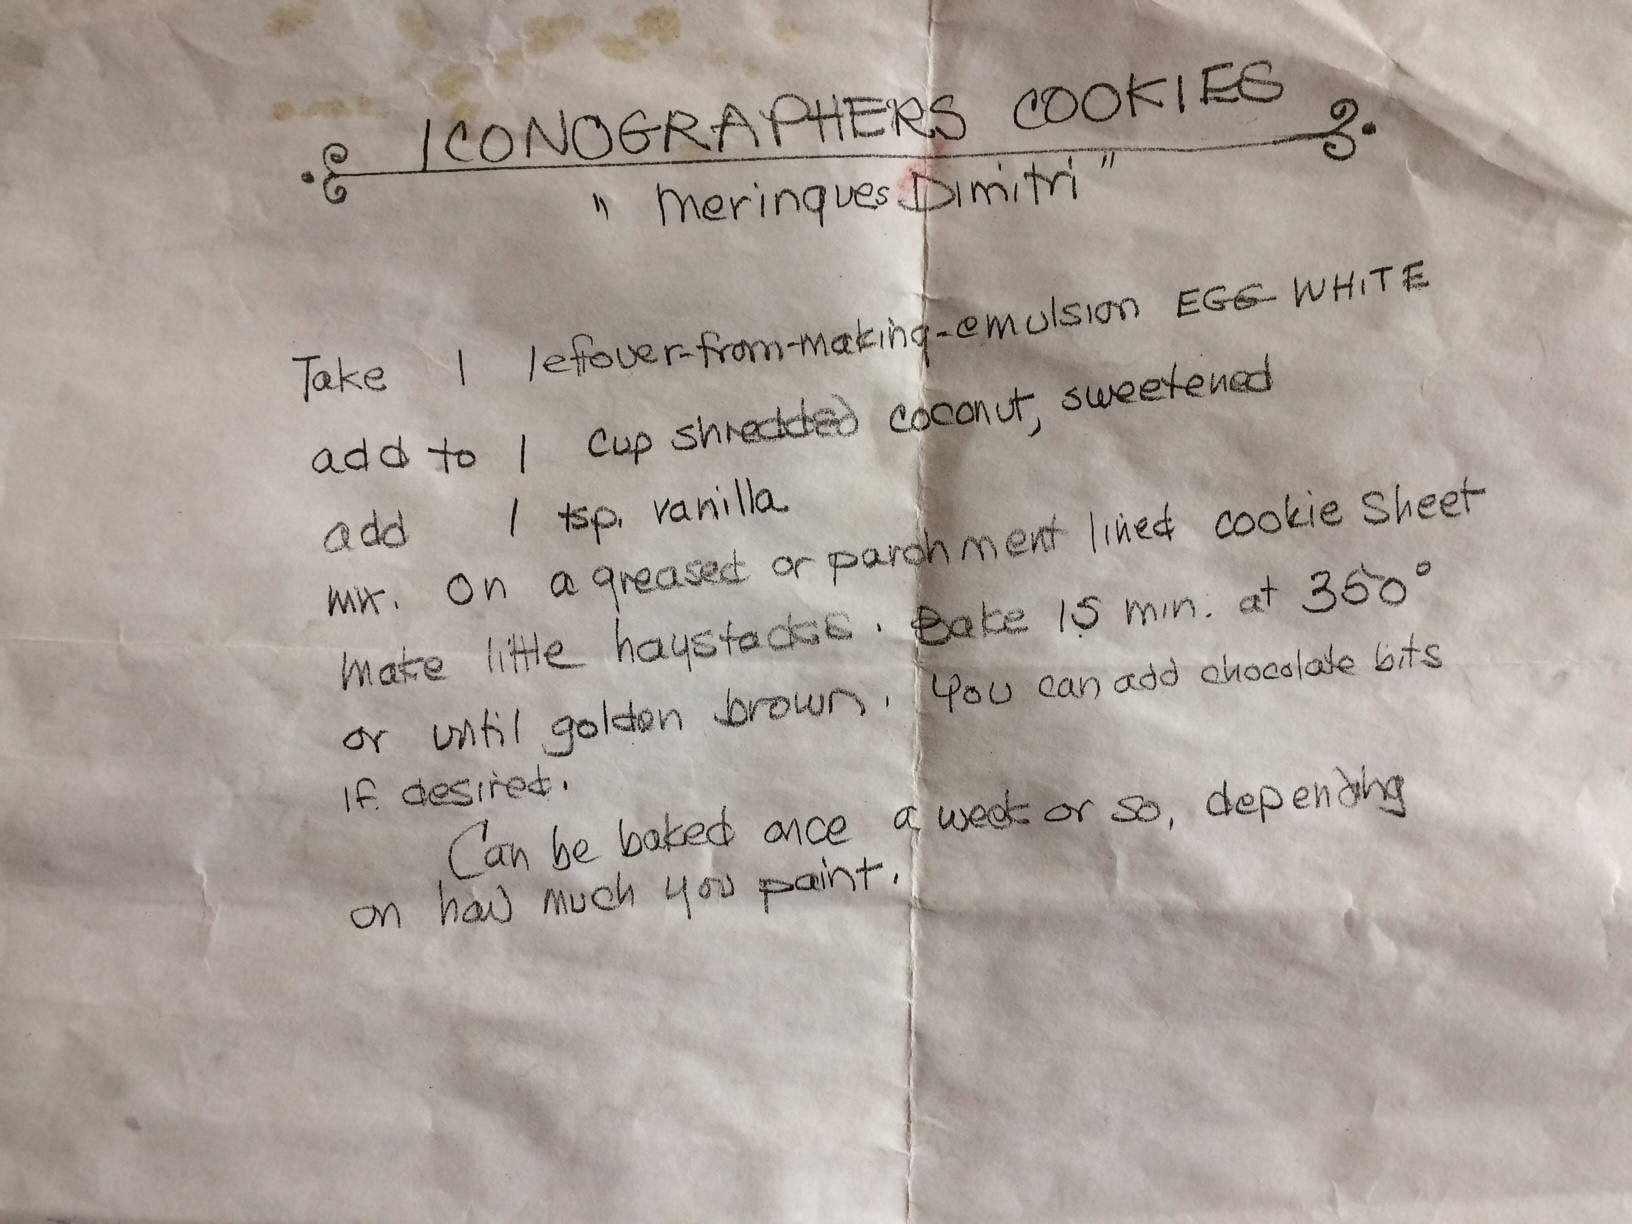 ICONOGRAPHERS COOKIES
" Meringues Dimitri "
Take 1 leftover-from-making-emulsion EGG WHITE
add to 1 cup shredded coconut, sweetened
add 1 tsp. vanilla
mix. On a greased or parchment lined cookie sheet
make little haystacks. Bake 15 min. at 350°
or until golden brown. You can add chocolate bits
if desired.
Can be baked once a week or so, depending
on how much you paint.